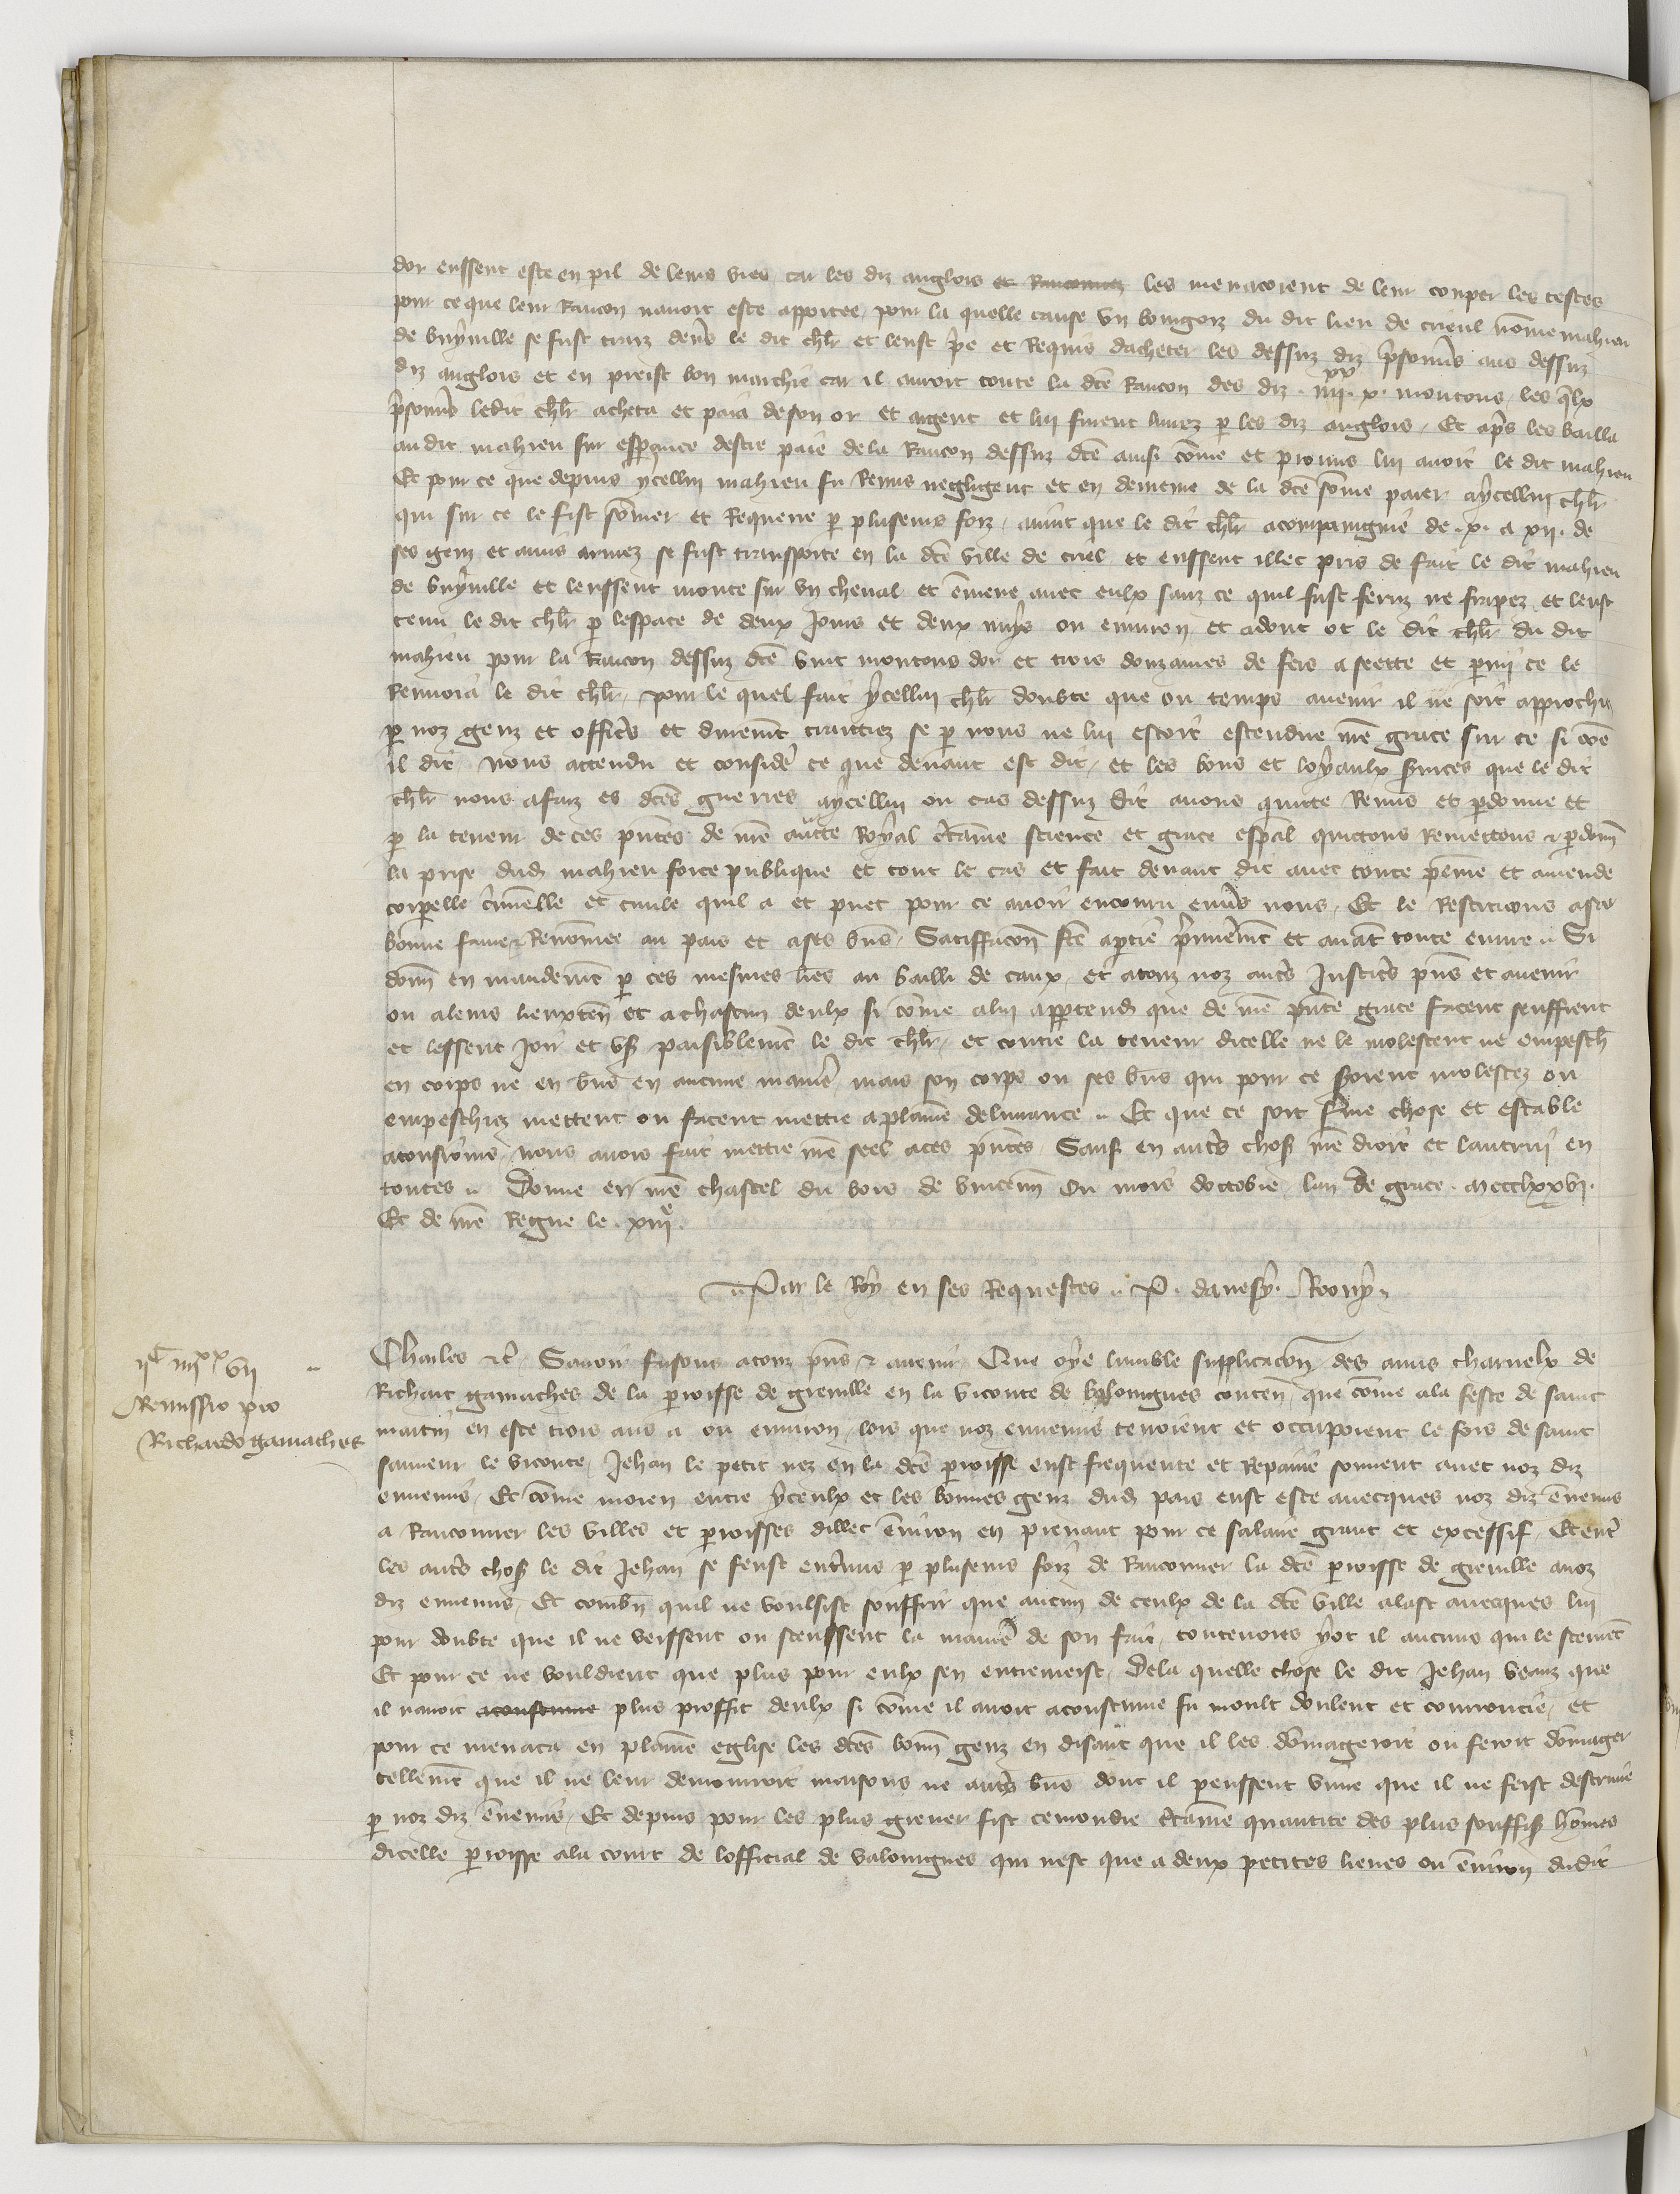 dor eussent este en pil de leurs vies car les diz anglois et Ranconnez les menacoient de leur couper les testes
pour ce que leur Rancon navoit este apportee, pour la quelle cause un bourgois du dit lieu de crieul nōme mahieu
de se fust traiz devs le dit chlr et leust pe et Requis dacheter les dessuz diz prisonns aus dessuz
diz anglois et en preist bon marchie car il auroit toute la dce Rancon des diz . iiii xx . x . moutons, les qlx
prisonns ledit chlr acheta et paia de son or et argent et lui furent livrez p les diz anglois, Et aps les bailla
au dit mahieu sur esperance destre paie de la Rancon dessuz dce ainsi cōme et promis lui avoit le dit mahieu
Et pour ce que depuis ycellui mahieu fu Remis negligent et en demeure de la dce sōme paier a ycellui chlr
qui sur ce le fist sōmer et Requerre p pluseurs foiz, avint que le dit chlr acompaignie de . x . a xii . de
ses gens et amis armez se fust transporte en la dce ville de criel et eussent illec pris de fait le dit mahieu
de et leussent monte sur un cheval et ēmene avec eulx sanz ce quil fust feruz ne frapez et leust
tenu le dit chlr p lespace de deux jours et deux nuys ou environ et adont ot le dit chlr du dit
mahieu pour la Rancon dessuz dce vint moutons dor et trois douzaines de fers a seette et pmi ce le
Renvoia le dit chlr, pour le quel fait ycellui chlr doubte que ou temps avenir il ne soit approchie
p noz genz et officrs et durement traittiez se p nous ne lui estoit estendue nre grace sur ce si cōe
il dit Nous attendu et consider ce que devant est dit, et les bons et loyaulx svices que le dit
chlr nous a faiz es dces guerres aycellui ou cas dessuz dit avons quitte Remis et pdonne et
p la teneur de ces pntes de nre auctte Royal ctaine science et grace espal quittons Remettons & pdonn
la prise dud mahieu force publique et tout le cas et fait devant dit avec toute peine et amende
corpelle criminelle et civile quil a et puet pour ce avoir encouru envs nous, Et le Restituons a sa
bonne fame & Renōmee au pais et a ses biens, Satiffacon fce a ptie primevemt et avāt toute euvre Si
donn en mandemt p ces mesmes lres au bailli de caux, et a touz noz autrs justicrs pns et avenir
ou a leurs lieuxten et a chascun deulx si cōme a lui apptendra que de nre pnte grace facent seuffrent
et lessent joir et us paisiblemt le dit chlr, et contre la teneur dicelle ne le molestent ne empesch
en corps ne en biens en aucune manie mais son corps ou ses biens qui pour ce soient molestez ou
empeschiez mettent ou facent mettre a plaine delivrance Et que ce soit ferme chose et estable
a tousjours nous avons fait mettre nre seel a ces pntes Sauf en autrs chos nre droit et lautrui en
toutes Donne en nre chastel du bois de vincenn Ou mois doctobre lan de grace . mccclxxvi .
Et de nre Regne le . xiiie .
Par le Roy en ses Requestes P. danesy. Roony.
iiC iiiixx vii
Remissio pro
Richardo gamaches
Charles etc Savoir faisons a touz pns & avenir Que oye lumble supplicacon des amis charnelx de
Richart gamaches de la proisse de greville en la viconte de valoignes conten que cōme a la feste de saint
martin en este trois ans a ou environ, lors que noz ennemis tenoient et occupoient le fors de saint
sauveur le viconte, Jehan le petit nez en la dce proisse eust frequente et Repairie souvent avec noz diz
ennemis, Et cōme moien entre yceulx et les bonnes genz dud pais eust este avecques noz diz ēnemis
a Ranconner les villes et proisses dillec ēviron en prenant pour ce salaire grant et excessif, Et entr
les autrs chos le dit Jehan se feust entrmis p pluseurs foiz de Ranconner la dce proisse de greville a noz
diz ennemis, Et combn quil ne voulsist souffrir que aucun de ceulx de la dce ville alast avecques lui
pour doubte que il ne veissent ou sceussent la manie de son fait, toutevoies y ot il aucuns qui le sceurent
Et pour ce ne vouldrent que plus pour eulx sen entremeist, De la quelle chose le dit Jehan veanz que
il navoit acoustume plus proffit deulx si cōme il avoit acoustume fu moult doulent et courroucie, et
pour ce menaca en plaine eglise les dces bonn genz en disant que il les dōmageroit ou feroit dōmager
tellemt que il ne leur demourroit maisons ne autrs biens dont il peussent vivre que il ne feist destruire
p noz diz ēnemis, Et depuis pour les plus grever fist cemondre ctaine quantite des plus souffis hōmes
dicelle proisse a la court de lofficial de valoignes qui nest que a deux petites lieues ou ēviron dudit